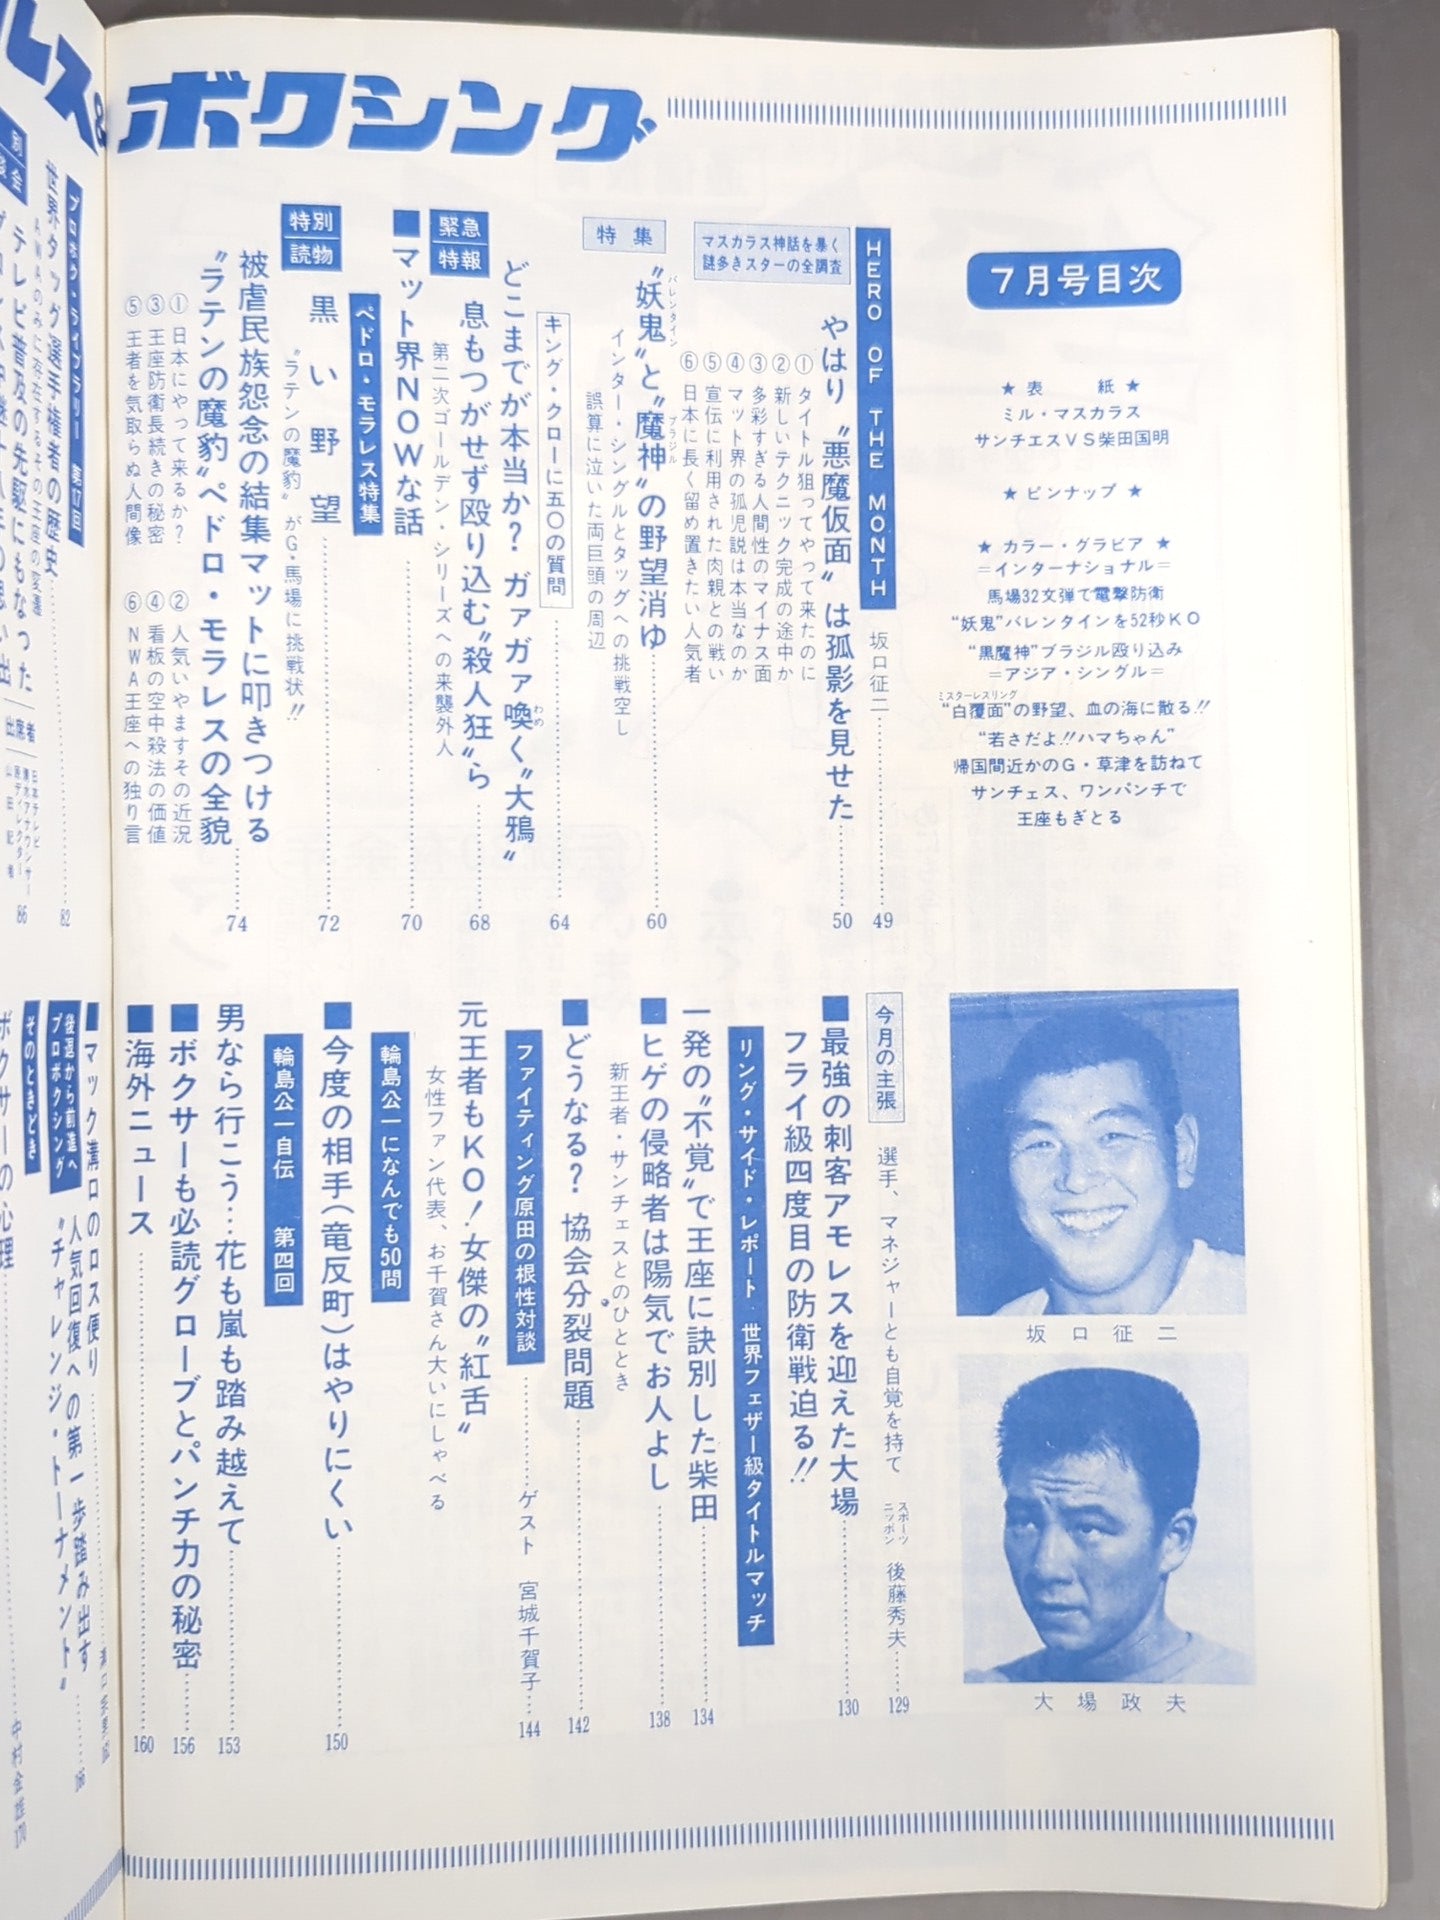 ボクシング
7月号目次
★表紙★
ミル・マスカラス
サンチエスVS柴田国明
★ピンナップ★
★カラー・グラビア★
=インターナショナル=
馬場32文弾で電撃防衛
“妖鬼”バレンタインを52秒KO
“黒魔神”ブラジル殴り込み
=アジア・シングル=
ミスターレスリング
“白覆面”の野望、血の海に散る!!
“若さだよ!!ハマちゃん”
帰国間近かのG・草津を訪ねて
サンチェス、ワンパンチで
王座もぎとる
坂口征二
大場政夫
HERO OF THE MONTH
坂口征二……49
マスカラス神話を暴く
謎多きスターの全調査
やはり“悪魔仮面”は孤影を見せた……50
①タイトル狙ってやって来たのに
②新しいテクニック完成の途中か
③多彩すぎる人間性のマイナス面
④マット界の孤児説は本当なのか
⑤宣伝に利用された肉親との戦い
⑥日本に長く留め置きたい人気者
特集
“妖鬼”と“魔神”の野望消ゆ……60
バレンタイン
ブラジル
インター・シングルとタッグへの挑戦空し
誤算に泣いた両巨頭の周辺
キング・クローに五〇の質問……64
どこまでが本当か?ガァガァ喚く“大鴉”
わめ
緊急特報
息もつがせず殴り込む“殺人狂”ら……68
第二次ゴールデン・シリーズへの来襲外人
■マット界NOWな話……70
ペドロ・モラレス特集
特別読物
黒い野望……72
“ラテンの魔豹”がG・馬場に挑戦状!!
被虐民族怨念の結集マットに叩きつける
“ラテンの魔豹”ペドロ・モラレスの全貌……74
①日本にやって来るか?
②人気いやますその近況
③王座防衛長続きの秘密
④看板の空中殺法の価値
⑤王者を気取らぬ人間像
⑥NWA王座への独り言
今月の主張
選手、マネジャーとも自覚を持て
スポーツニッポン
後藤秀夫……129
■最強の刺客アモレスを迎えた大場……130
フライ級四度目の防衛戦迫る!!
リング・サイド・レポート 世界フェザー級タイトルマッチ
一発の“不覚”で王座に訣別した柴田……134
■ヒゲの侵略者は陽気でお人よし……138
新王者・サンチェスとのひととき
■どうなる?協会分裂問題……142
ファイティング原田の根性対談……ゲスト 宮城千賀子……144
元王者もKO!女傑の“紅舌”
女性ファン代表、お千賀さん大いにしゃべる
輪島公一になんでも50問
■今度の相手(竜反町)はやりにくい……150
輪島公一自伝 第四回
男なら行こう…花も嵐も踏み越えて……153
■ボクサーも必読グローブとパンチ力の秘密……156
■海外ニュース……160
プロボク・ライブラリー 第17回
世界タッグ選手権者の歴史……82
AWAのみに存在するその王座の変遷
テレビ普及の先駆にもなった
出席者
86
■マック溝口のロス便り
後退から前進へ
プロボクシング
人気回復への第一歩踏み出す
“チャレンジ・トーナメント”……166
そのときどき
ボクサーの心理……中村金雄170